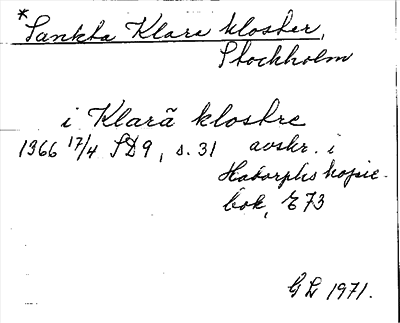 *Sankta Klara kloster,
Stockholm
i Klarã klostre
1366 17/4 SD9, s. 31 avskr. i
Hadorphs kopie-
bok, E73
GL 1971.